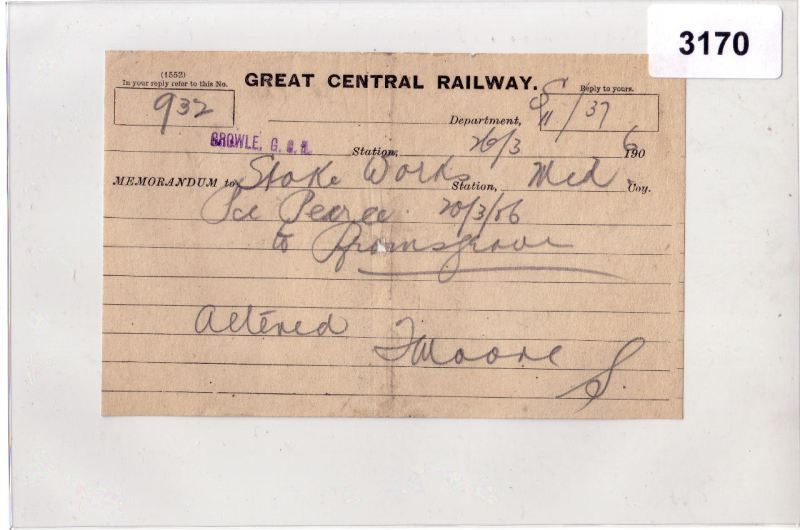 3170
(1552)
In your reply refer to this No.
932
GREAT CENTRAL RAILWAY.
Reply to yours.
S 11/37
Department,
CROWLE, G. C. R. Station, 26/3 1906
MEMORANDUM to Stoke Works Station, Mid Coy.
20/3/06
to Bromsgrove
Altered
Moore
S.